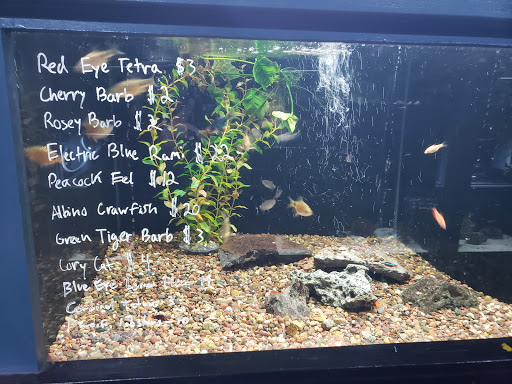 Red Eye Tetra $3
Cherry Barb $2
Rosey Barb $3
Electric Blue Ram $22
Peacock Eel $12
Albino Crawfish $20
Green Tiger Barb $3
Cory Cat $4
Blue Eye